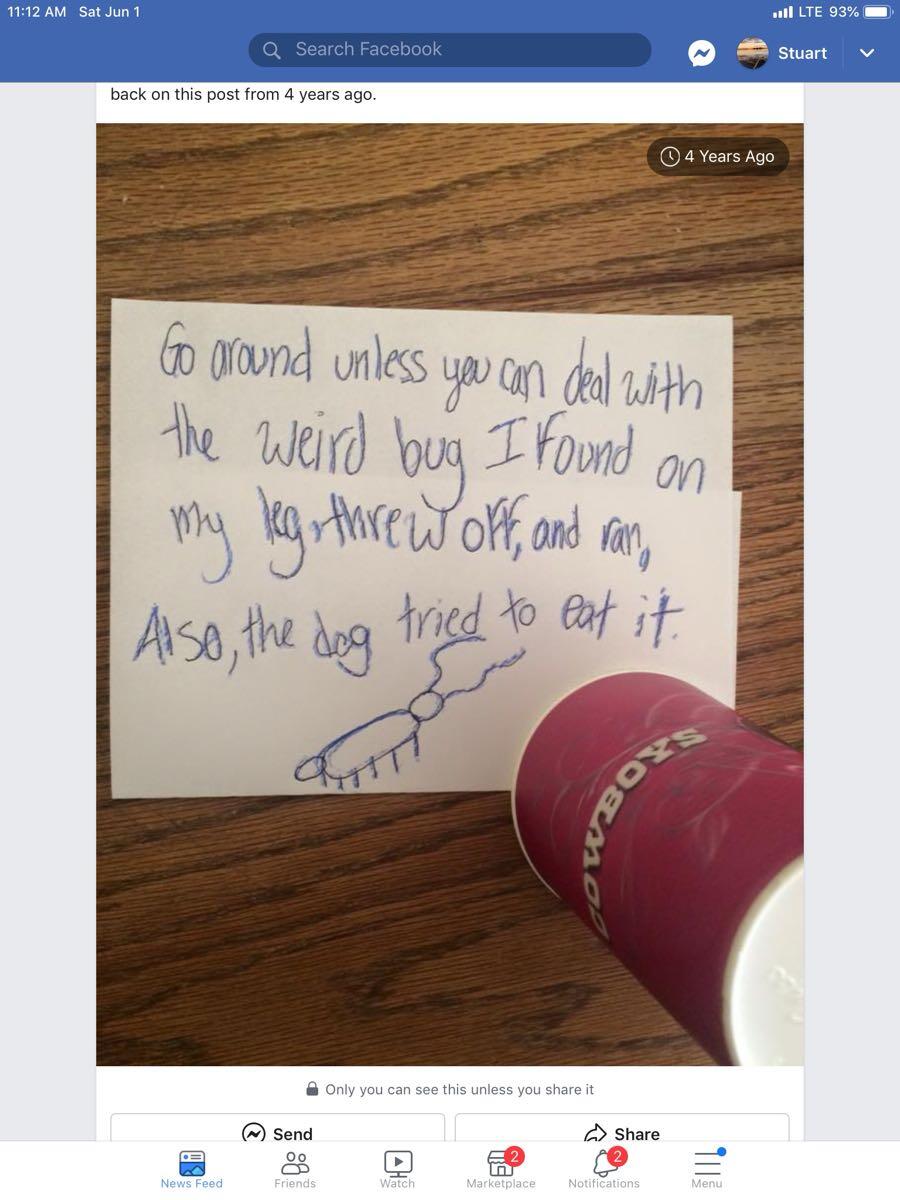 11:12 AM Sat Jun 1
LTE 93%
Search Facebook
Stuart
back on this post from 4 years ago.
4 Years Ago
Go around unless you can deal with
the weird bug I found on
my leg, threw off, and ran,
Also, the dog tried to eat it.
COWBOYS
Only you can see this unless you share it
Send
Share
2
2
News Feed
Friends
Watch
Marketplace
Notifications
Menu